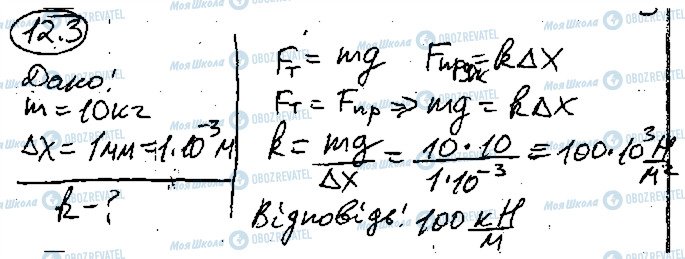 12.3
Дано:
m = 10кг
Δx = 1мм = 1·10⁻³м
k - ?
Fт = mg Fпруж = kΔx
Fт = Fпр ⇒ mg = kΔx
k = mg/Δx = 10·10/1·10⁻³ = 100·10³ Н/м²
Відповідь: 100 кН/м
МояШкола OBOZREVATEL